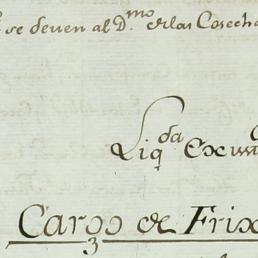 se deven al D.mo de las Cosech
Liq.da
Cargo de Frix